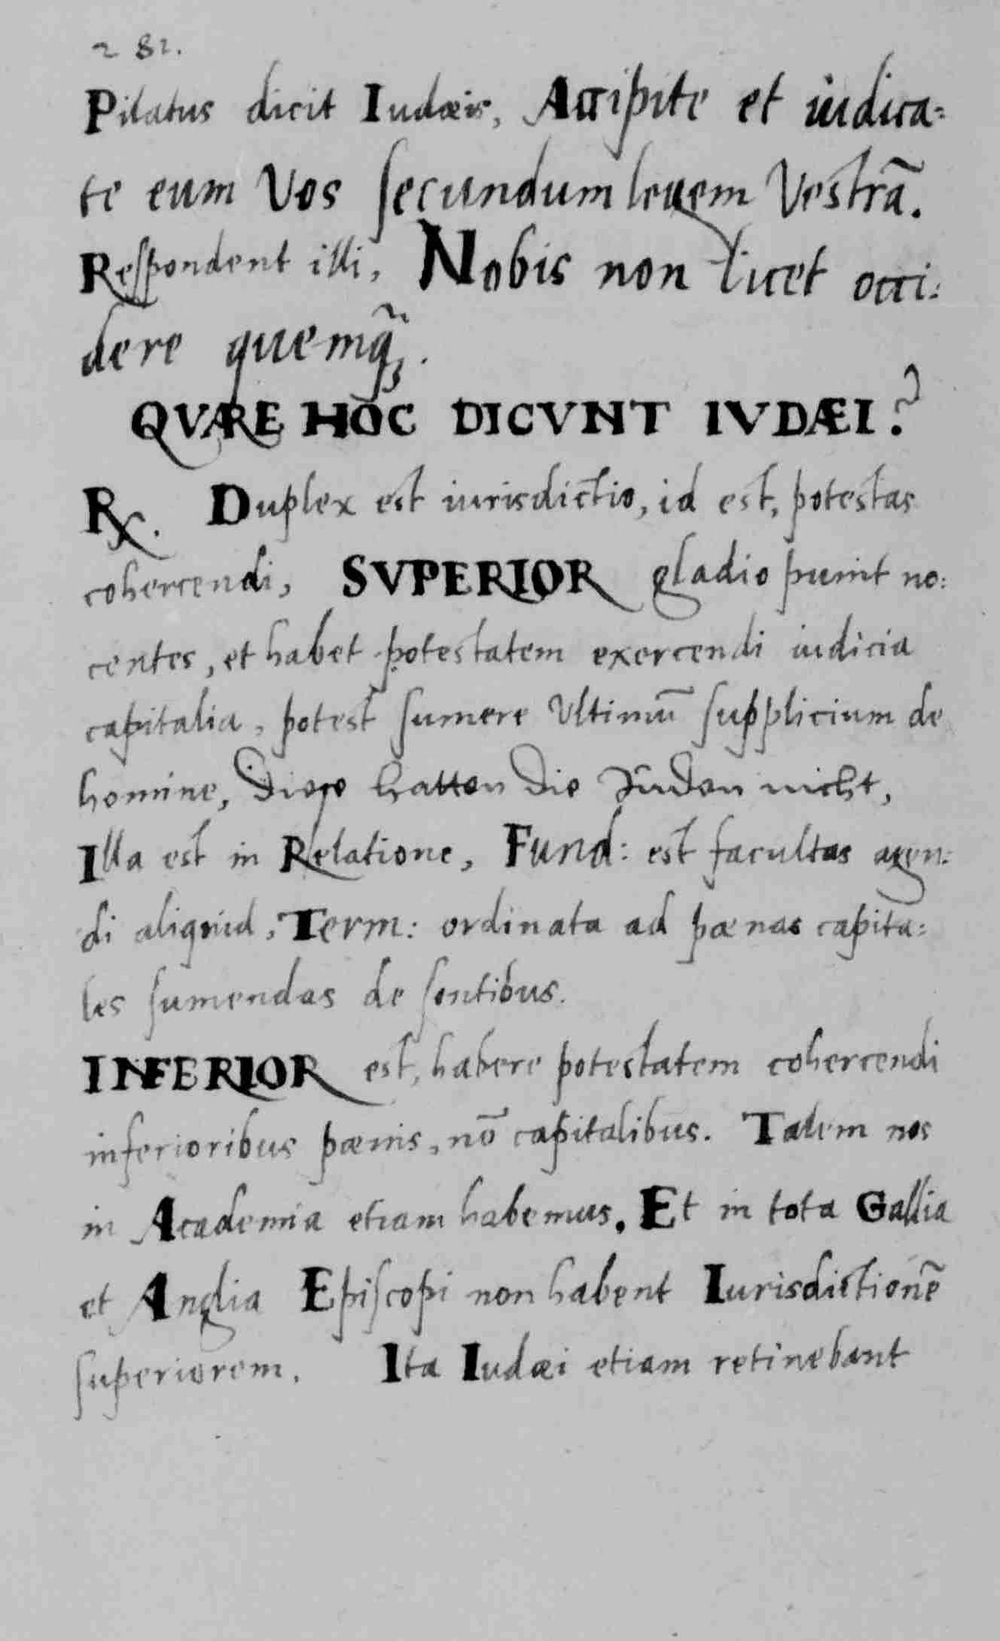 281.
Pilatus dicit Iudæis, Accipite et iudica=
te eum Vos secundum legem Vestrã.
Respondent illi, Nobis non licet occi:
dere quemq̃;.
QVARE HOC DICVNT IVDÆI?
R. Duplex est iurisdictio, id est, potestas
cohercendi, SVPERIOR gladio punit no:
centes, et habet potestatem exercendi iudicia
capitalia, potest sumere Ultimũ supplicium de
homine, Diese hatten die Jüden nicht,
Illa est in Relatione, Fund: est facultas agen:
di aliquid, Term: ordinata ad pænas capita:
les sumendas de sontibus.
INFERIOR est, habere potestatem cohercendi
inferioribus pænis, nõ capitalibus. Talem nos
in Academia etiam habemus, Et in tota Gallia
et Anglia Episcopi non habent Iurisdictionẽ
superiorem. Ita Iudæi etiam retinebant